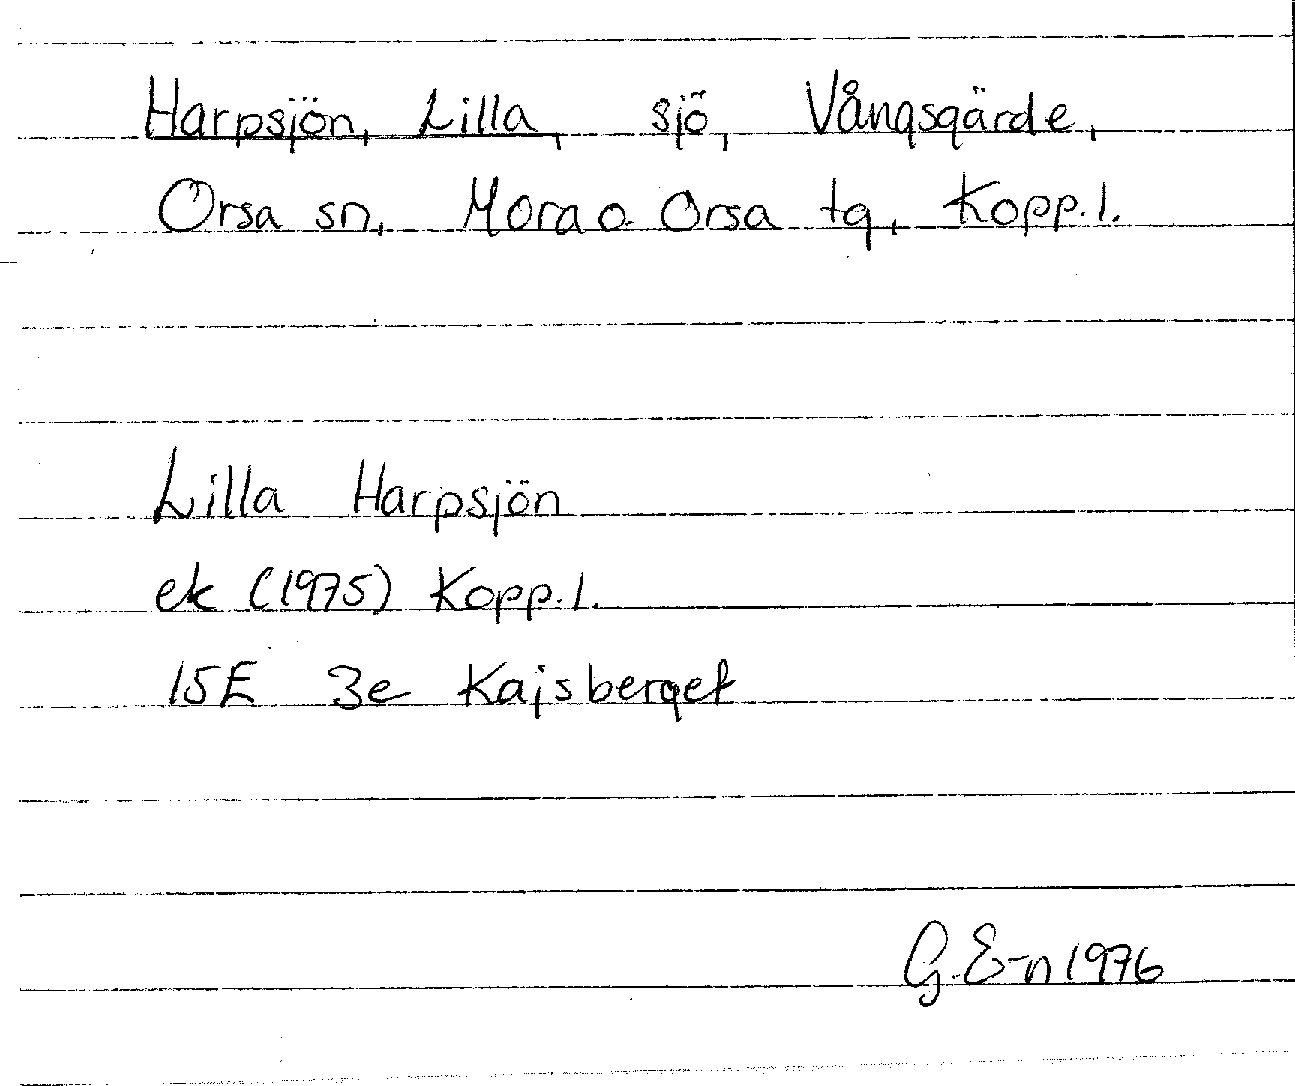 Harpsjön, Lilla, sjö, Vångsgärde,
Orsa sn, Mora o. Orsa tg, Kopp.l.
Lilla Harpsjön
ek (1975) Kopp.l.
15E 3e Kajsberget
G.E-n 1976